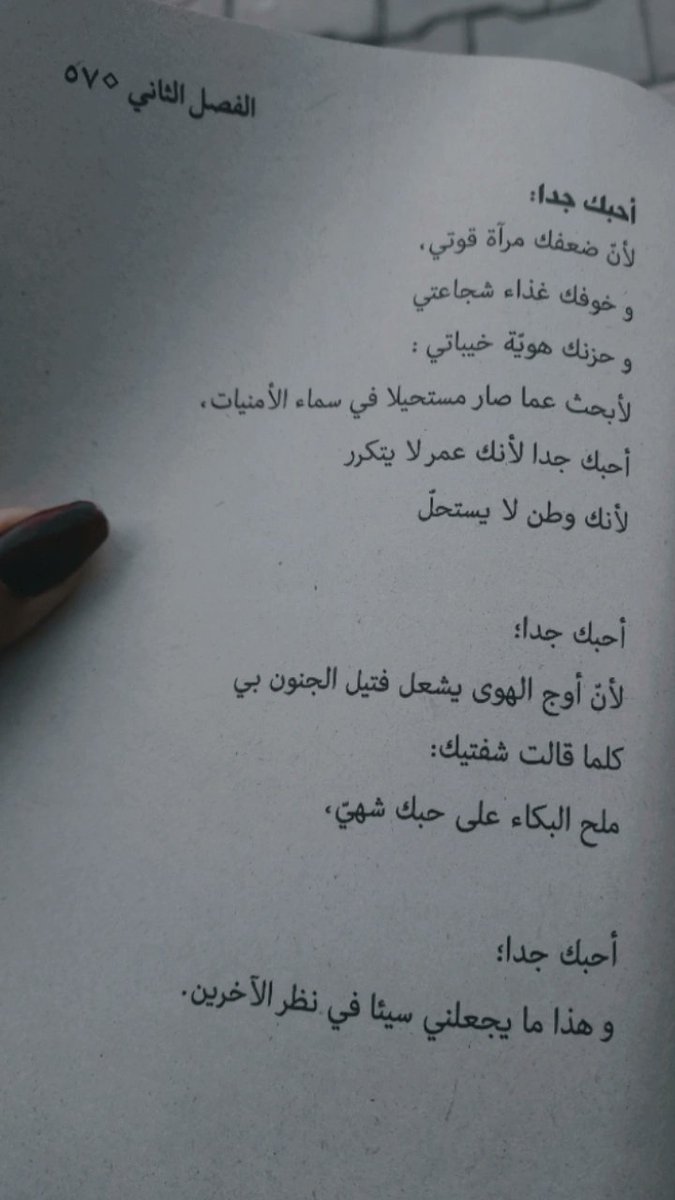 الفصل الثاني ٥٧٥
أحبك جدا:
لأنّ ضعفك مرآة قوتي،
و خوفك غذاء شجاعتي
و حزنك هويّة خيباتي :
لأبحث عما صار مستحيلا في سماء الأمنيات،
أحبك جدا لأنك عمر لا يتكرر
لأنك وطن لا يستحلّ
أحبك جدا؛
لأنّ أوج الهوى يشعل فتيل الجنون بي
كلما قالت شفتيك:
ملح البكاء على حبك شهيّ،
أحبك جدا؛
و هذا ما يجعلني سيئا في نظر الآخرين.